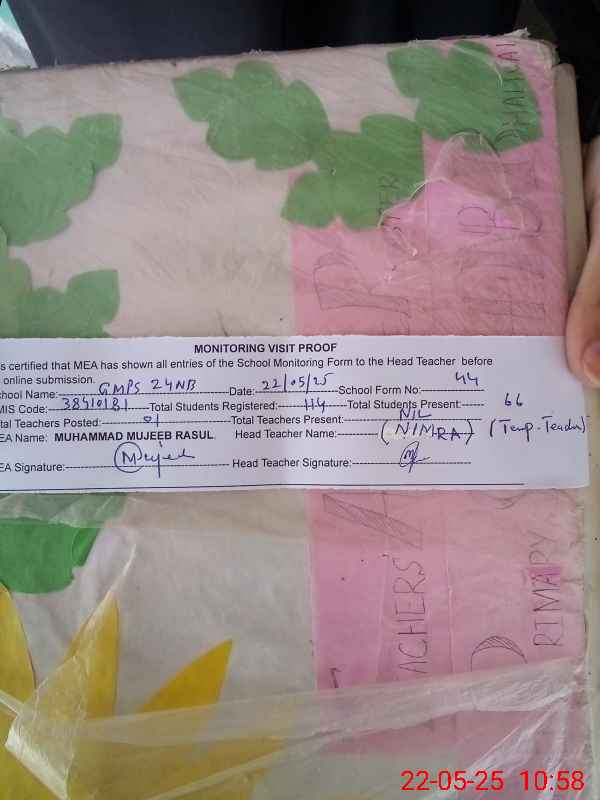 MONITORING VISIT PROOF
s certified that MEA has shown all entries of the School Monitoring Form to the Head Teacher before
online submission.
chool Name: GMPS 24NB Date: 22/05/25 School Form No: 44
MIS Code: 38410181 Total Students Registered: 114 Total Students Present: 66
otal Teachers Posted: 01 Total Teachers Present: NIL
EA Name: MUHAMMAD MUJEEB RASUL Head Teacher Name: (NIMRA) (Temp. Teacher)
EA Signature: Mujeeb Head Teacher Signature:
ACHERS
RIMARY
22-05-25 10:58